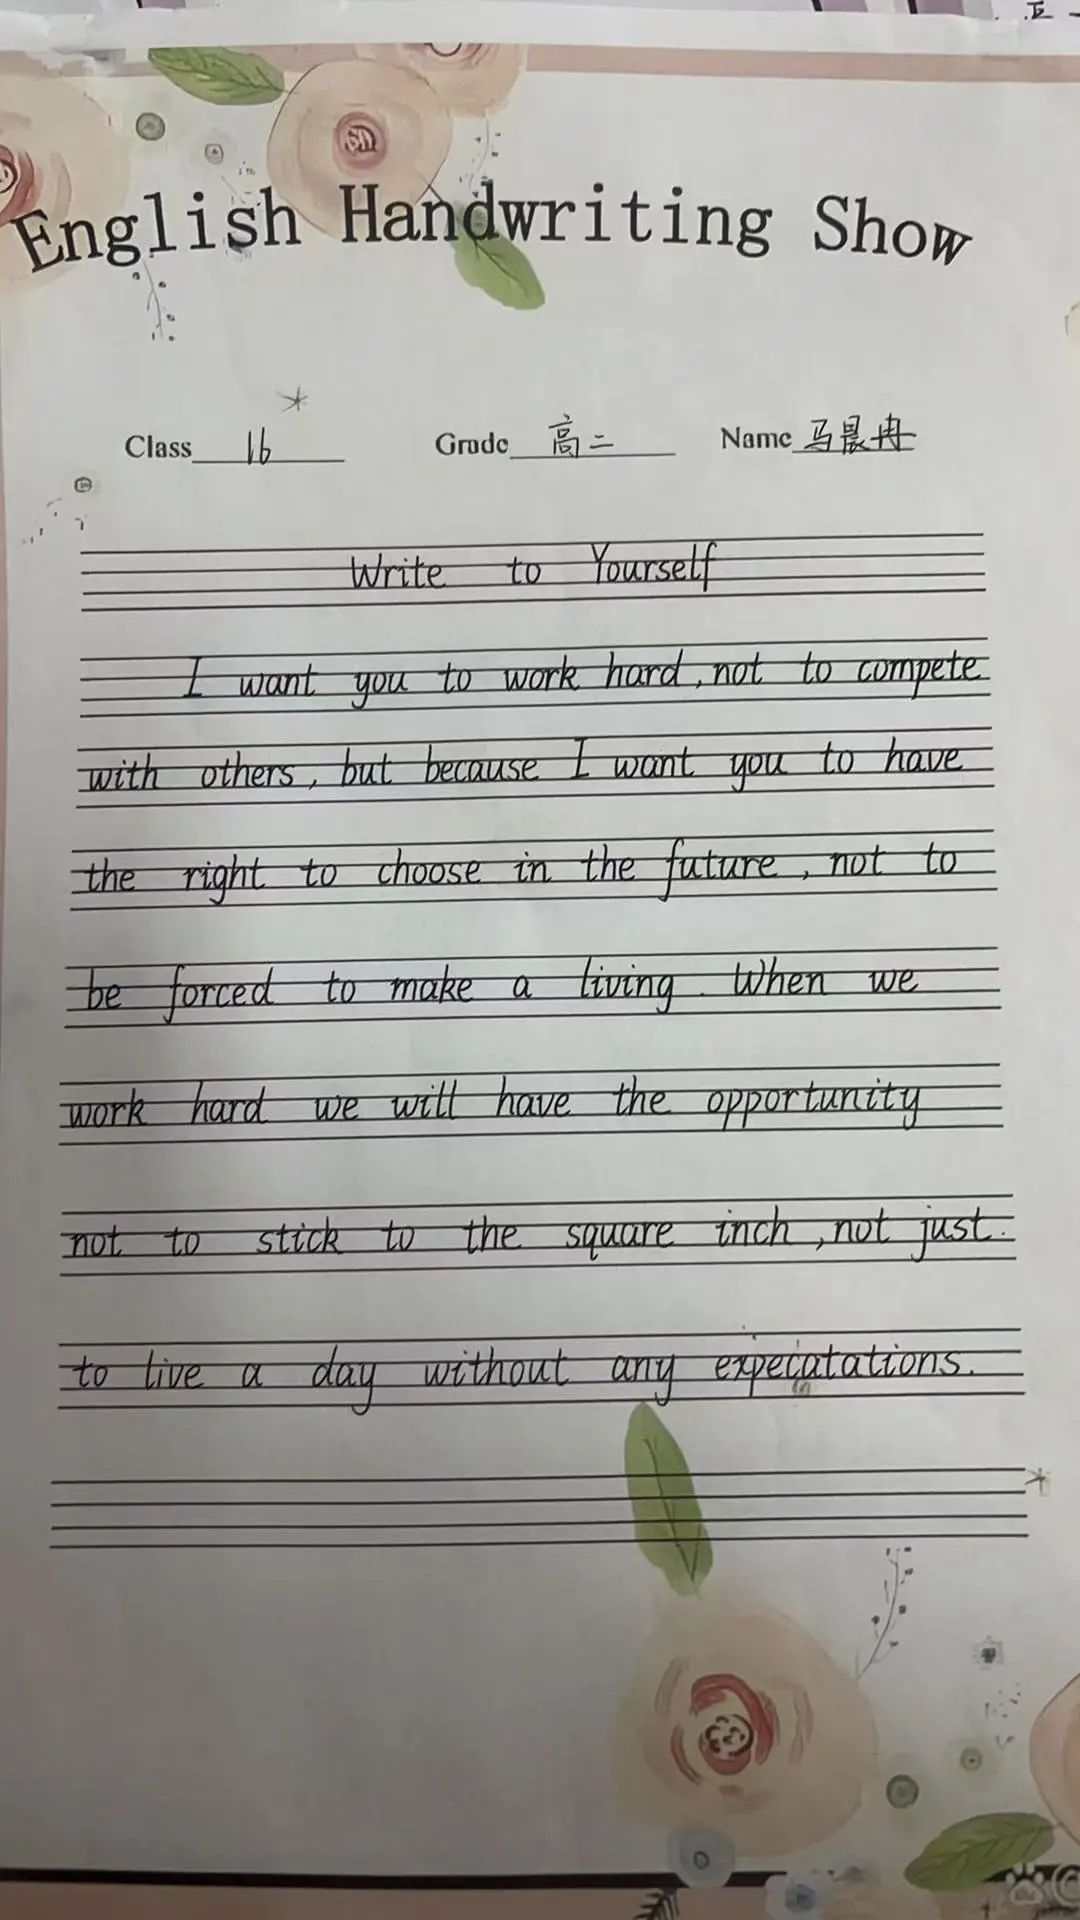 English Handwriting Show
Class 16 Grade 高二 Name 马晨冉
Write to Yourself
I want you to work hard, not to compete
with others, but because I want you to have
the right to choose in the future, not to
be forced to make a living. When we
work hard we will have the opportunity
not to stick to the square inch, not just.
to live a day without any expecatations.